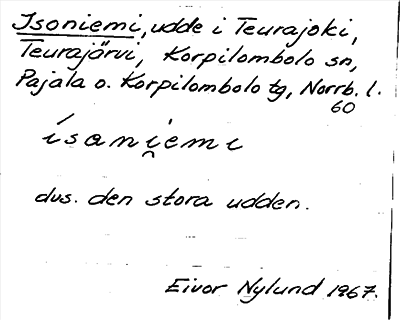 Isoniemi, udde i Teurajoki,
Teurajärvi, Korpilombolo sn,
Pajala o. Korpilombolo tg, Norrb. l.
60
ísani̯emi
dvs. den stora udden.
Eivor Nylund 1967.